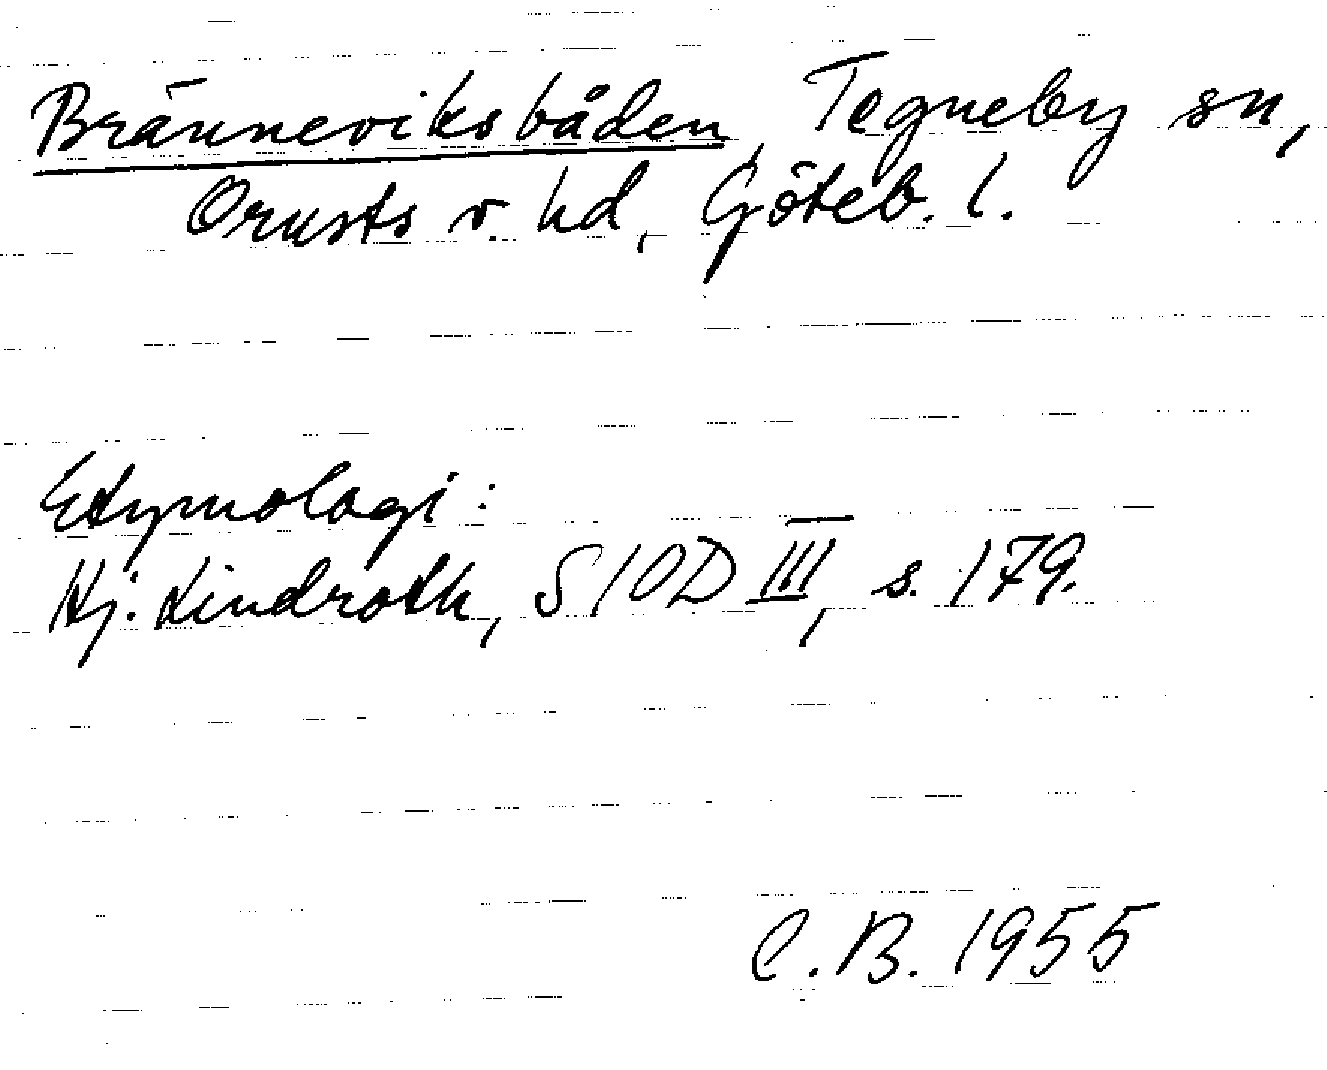 Bränneviksbåden, Tegneby sn,
Orusts v. hd, Göteb. l.
Etymologi:
Hj. Lindroth, SIOD III, s. 179.
C.B. 1955